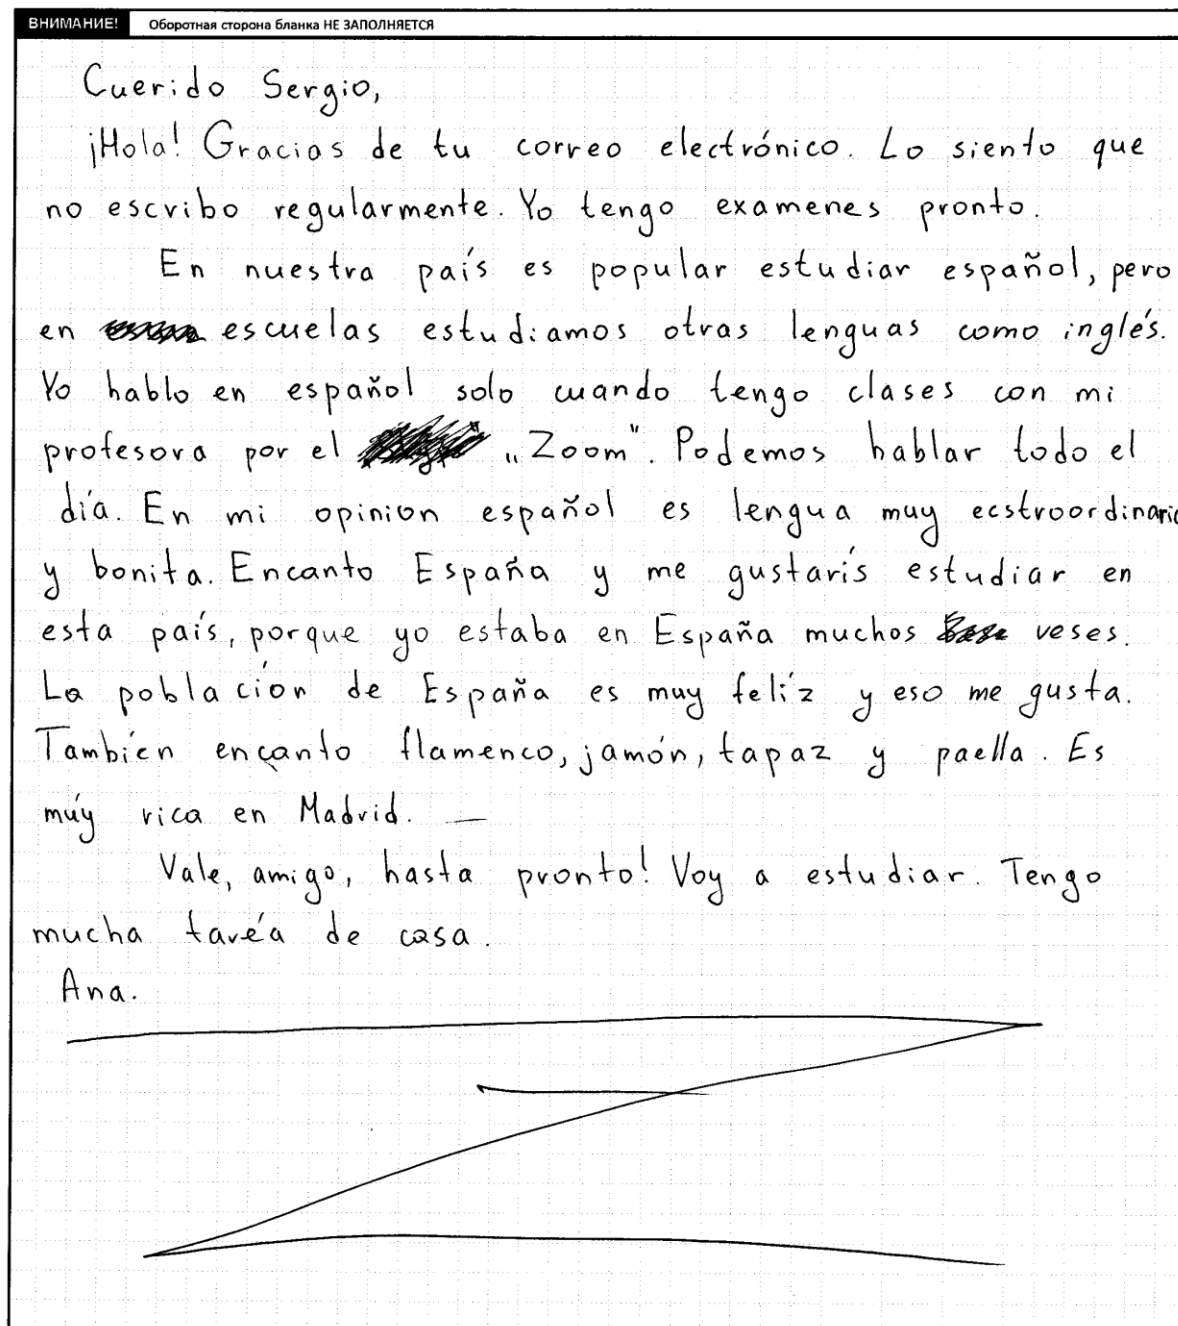 ВНИМАНИЕ! Оборотная сторона бланка НЕ ЗАПОЛНЯЕТСЯ
Cuerido Sergio,
¡Hola! Gracias de tu correo electrónico. Lo siento que
no escribo regularmente. Yo tengo examenes pronto.
En nuestra país es popular estudiar español, pero
en escuelas estudiamos otras lenguas como inglés.
Yo hablo en español solo cuando tengo clases con mi
profesora por el „Zoom". Podemos hablar todo el
día. En mi opinion español es lengua muy ecstroordinario
y bonita. Encanto España y me gustarís estudiar en
esta país, porque yo estaba en España muchos veses.
La población de España es muy felíz y eso me gusta.
Tambíen encanto flamenco, jamón, tapaz y paella. Es
múy rica en Madrid. —
Vale, amigo, hasta pronto! Voy a estudiar. Tengo
mucha taréa de casa.
Ana.